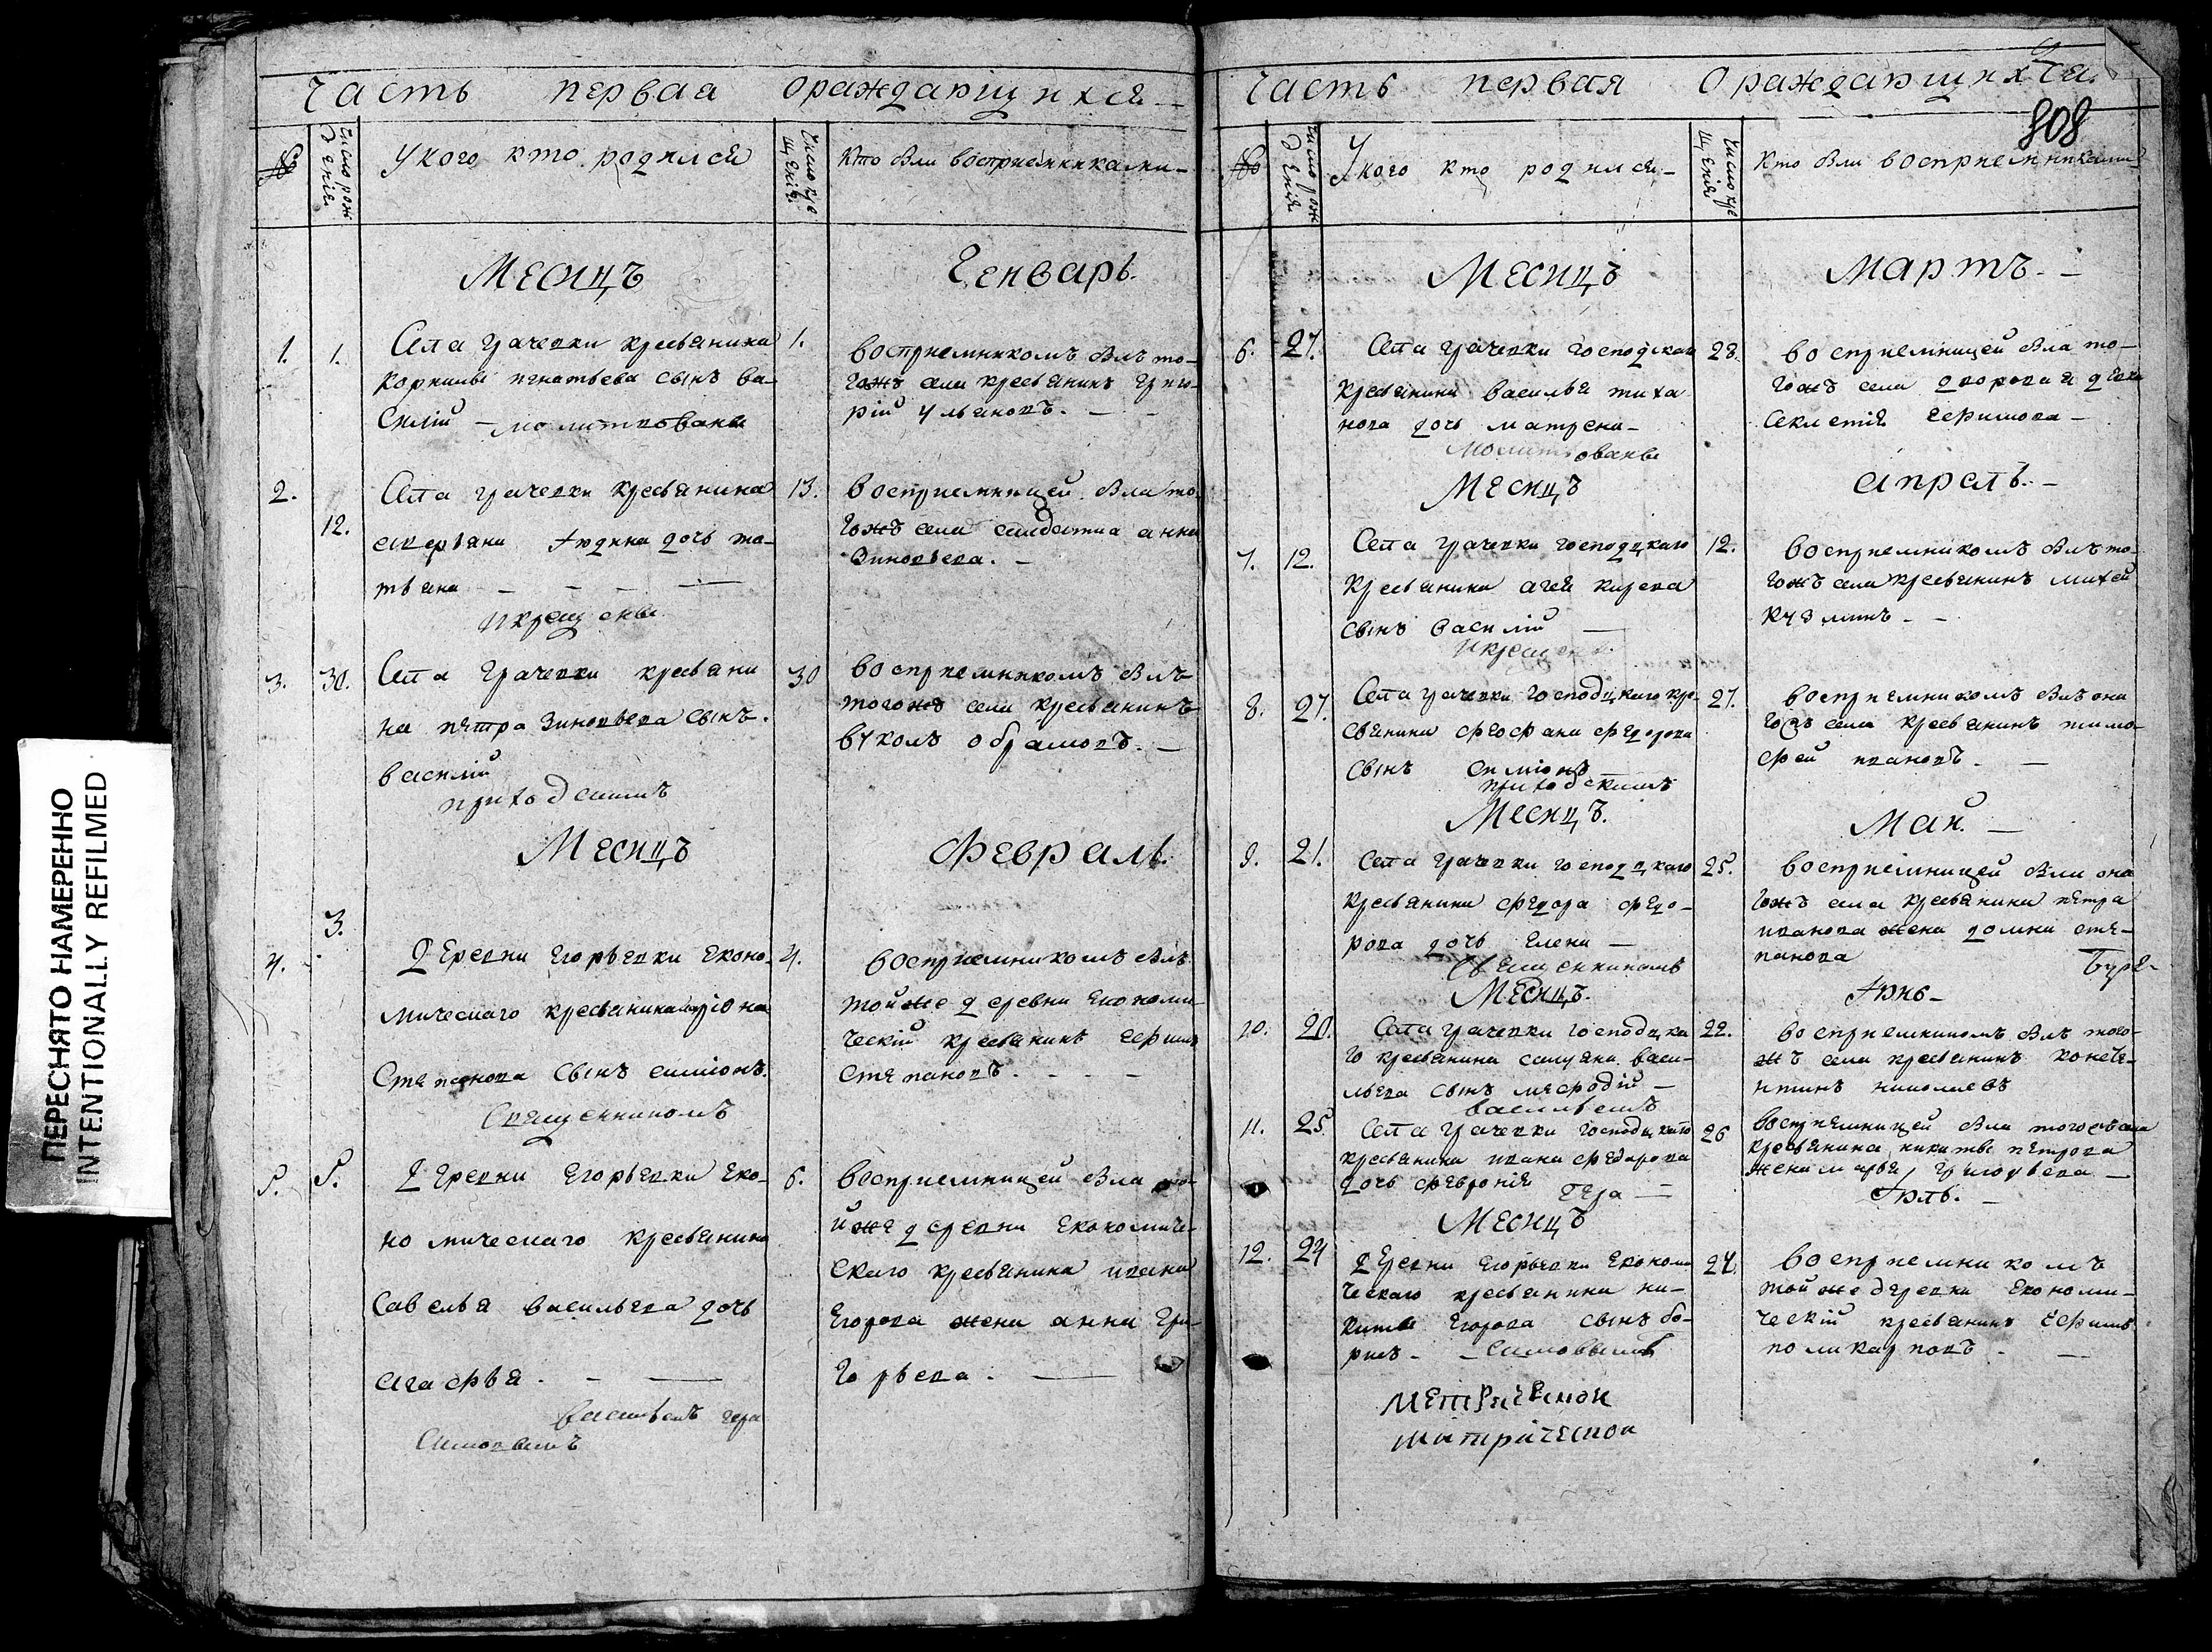 ПЕРЕСНЯТО НАМЕРЕННО
INTENTIONALLY REFILMED
Часть первая ораждающихся
№
Число рож
дения
У кого кто родился
Число кре
щения
Кто были восприемниками
Месицъ Генварь.
1. 1.
Села Грачевки крестьянина
Корнилы Игнатьева сынъ Ва-
силий – молитвованъ
1.
восприемникомъ былъ то-
гожъ села крестьянинъ Григо-
рій Ульяновъ.
2. 12.
Села Грачевки крестьянина
дочь та-
тьяна
и крещены
13.
восприемницей была то-
гожъ села салдатка анна
Зиновьева.
3. 30.
Села Грачевки крестьяни
на петра Зиновьева сынъ.
василій
приходскимъ
30
восприемникомъ былъ
тогожъ села крестьянинъ
вуколъ обрамовъ.
Месицъ Февраль.
4. 3.
Деревни Егорьевки Еконо-
мическаго крестьянина
Степанова сынъ симіонъ.
Священникомъ
4.
восприемникомъ былъ
тойже деревни Економи-
ческій крестьянинъ ефимъ
степановъ.
5. 5.
Деревни Егорьевки Еко-
номическаго крестьянина
Савелья васильева дочь
агафья.
6.
восприемницей была то-
йже деревни Економиче-
скаго крестьянина ивана
Егорова жена анна Гри-
горьева.
Васильемъ гера
Симовымъ
Часть первая ораждающихся
808
№
Число рож
дения
У кого кто родился
Число кре
щения
Кто были восприемниками
Месицъ Мартъ.
6. 27.
Села Грачевки господскаго
крестьянина василья тиха
нова дочь матрена
молитвованы
28.
восприемницей была то-
гожъ села дворовая девка
Секлетія ефимова
Месицъ апрель.
7. 12.
Села Грачевки господцкаго
крестьянина агея кирева
сынъ василій
и крещенъ
12.
восприемникомъ былъ то-
гожъ села крестьянинъ михей
кузминъ
8. 27.
Села Грачевки господцкаго кре-
стьянина феофана федорова
сынъ симіонъ
приходскимъ
27.
восприемникомъ былъ она
гожъ села крестьянинъ тимо-
фей ивановъ.
Месицъ. Маи.
9. 21.
Села Грачевки господцкаго
крестьянина федора федо-
рова дочь Елена
священникомъ
25.
восприемницей была она
гожъ села крестьянина петра
иванова жена домна сте-
панова
Месицъ. Июнь
10. 20.
Села Грачевки господцка
го крестьянина васи-
льева сынъ мефодій
васильемъ
22.
восприемникомъ былъ того-
жъ села крестьянинъ конста-
нтинъ николаевъ
11. 25.
Села Грачевки господцкаго
крестьянина ивана федорова
дочь февронія
Гера
26
восприемницей была тогожъ села
крестьянина никиты петрова
жена марья Григорьева
Месицъ Июль.
12. 24
Деревни Егорьевки Економи
ческаго крестьянина ни-
киты Егорова сынъ бо-
рисъ. Симовымъ
24.
восприемникомъ
тойже деревни Економи-
ческій крестьянинъ Ефимъ
поликарповъ.